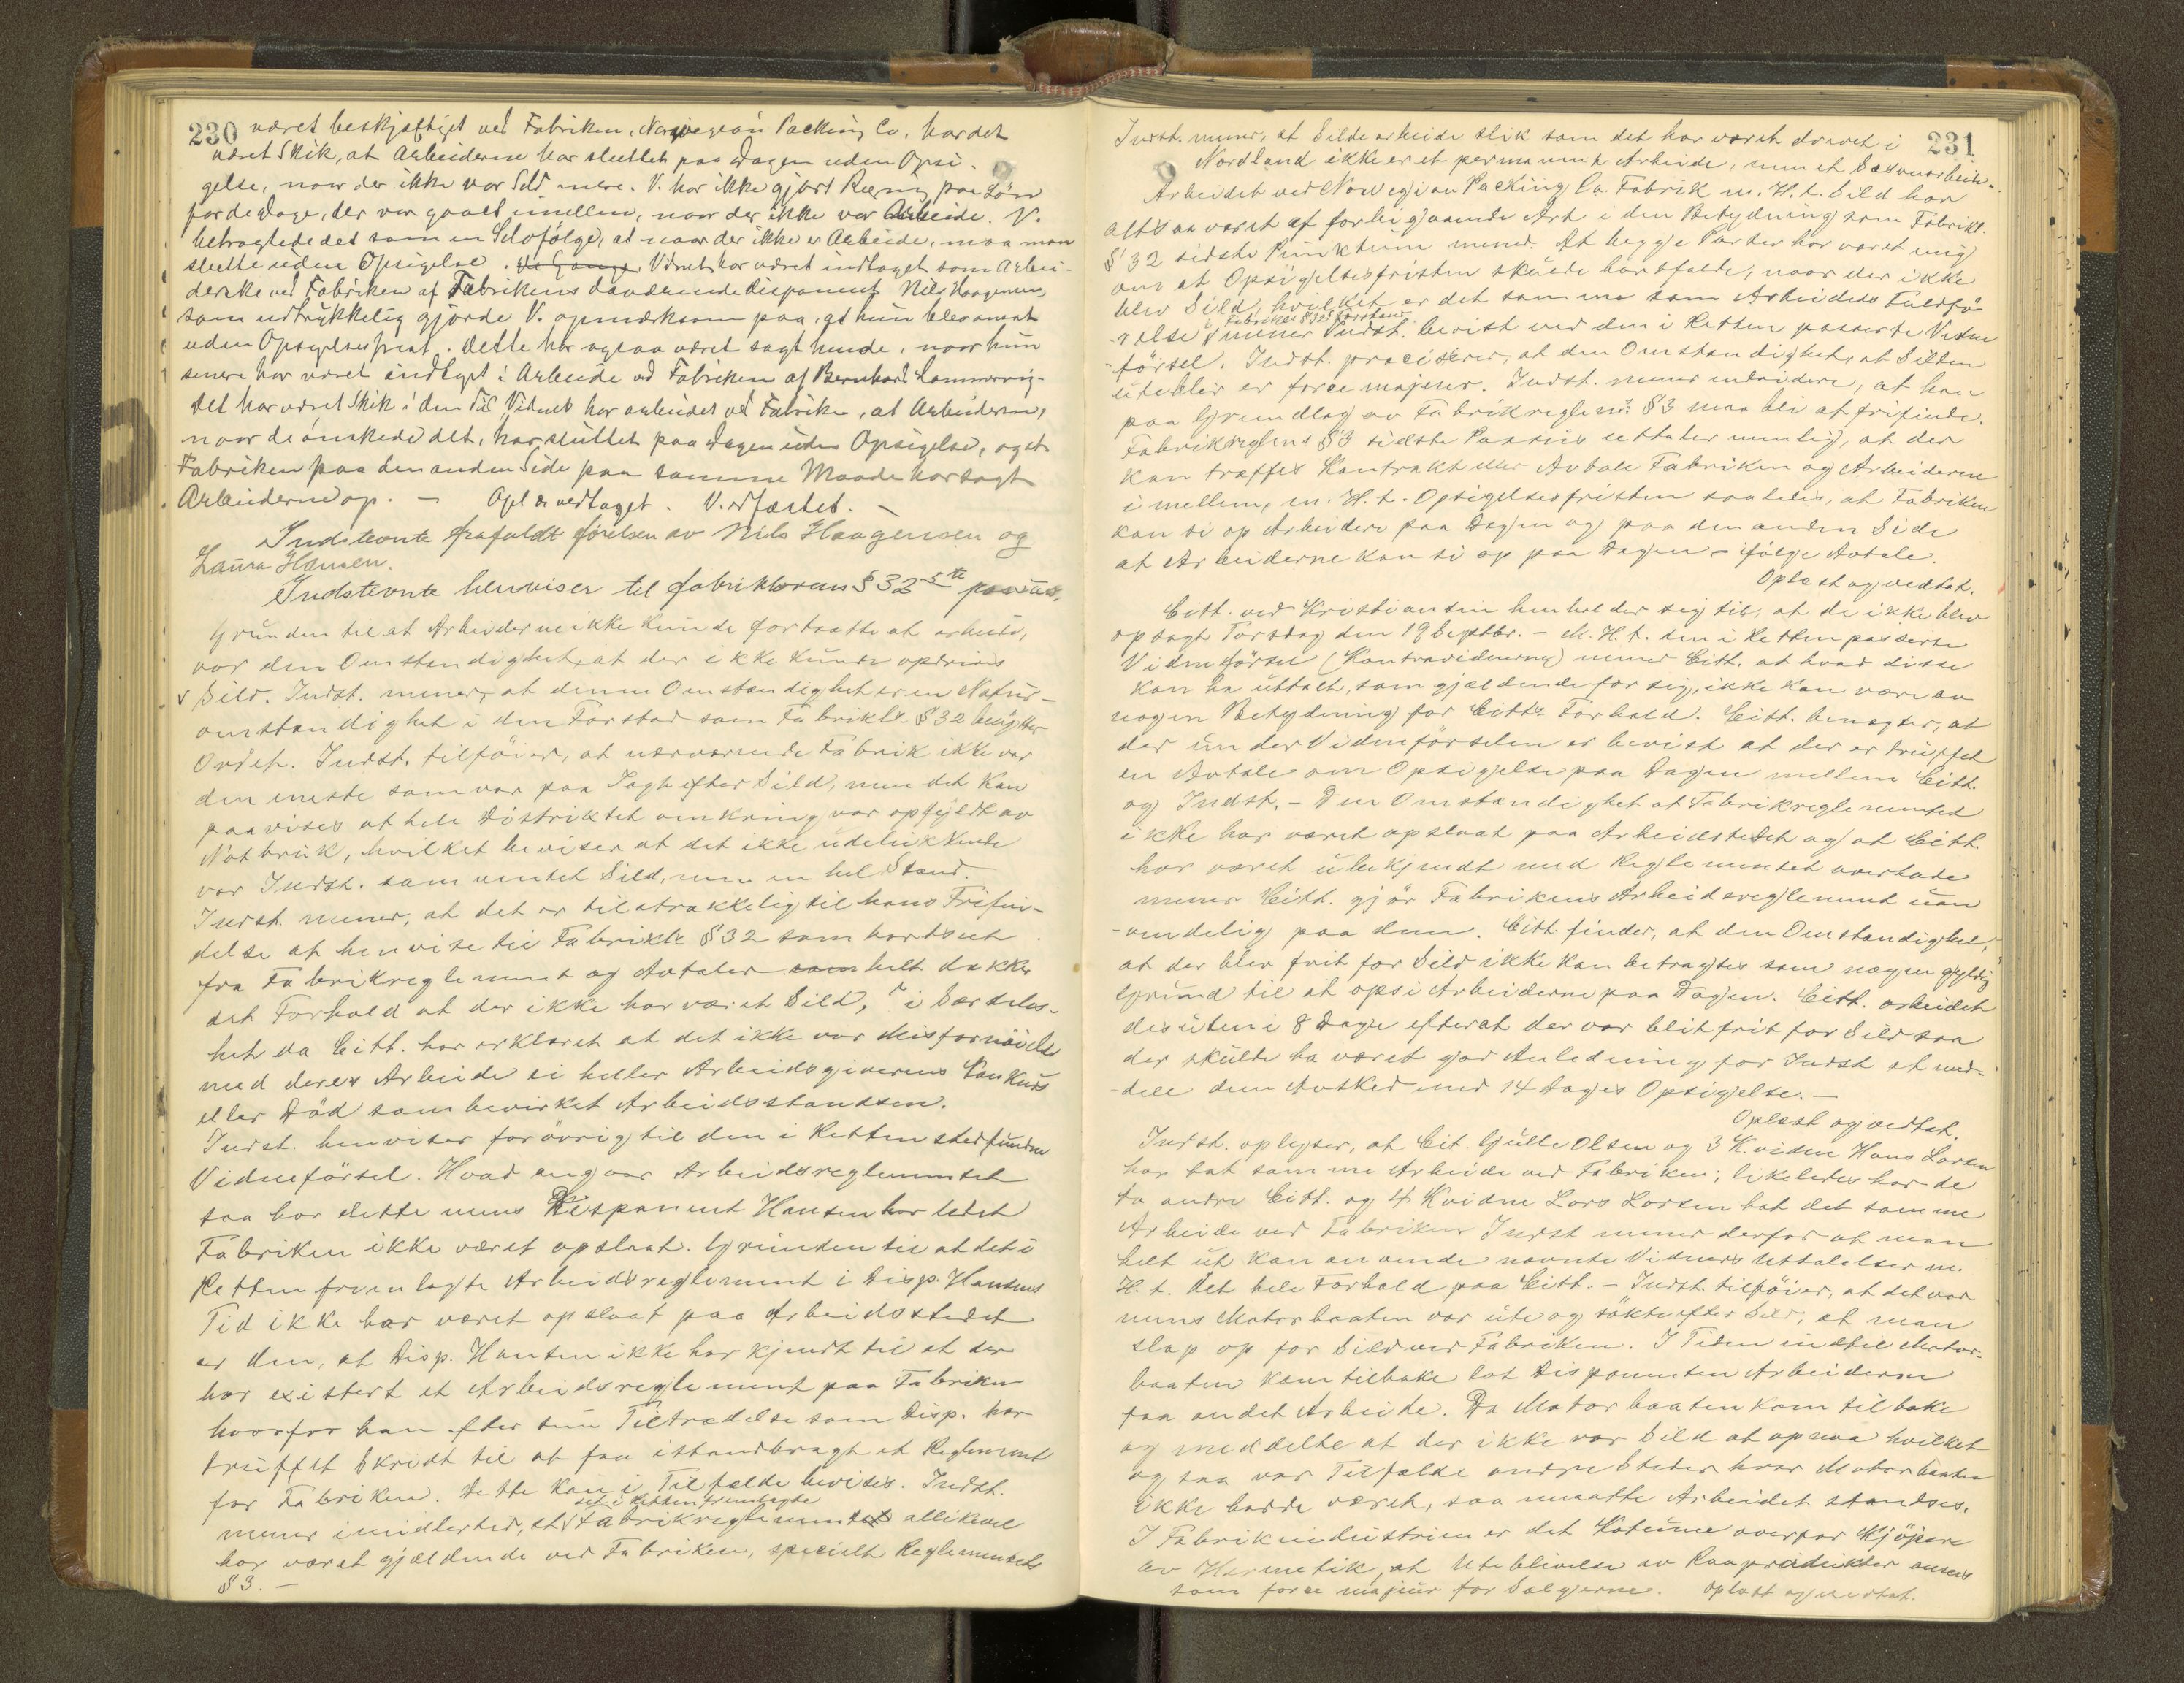 230 været beskjæftiget ved Fabriken, Norwegian Packing Co, har det
været Skik, at Arbeiderne har sluttet paa Dagen uden Opsi-
gelse, naar der ikke var Sild mere. V. har ikke gjort Regning paa Løn
for de Dage, der var gaaet imellem, naar der ikke var Arbeide. V.
betragtede det som en Selvfølge, at naar der ikke er Arbeide, maa man
slutte uden Opsigelse. Vidnet har været indtaget som Arbei-
derske ved Fabriken af Fabrikens daværende Disponent Nils Haagensen,
som udtrykkelig gjorde V. opmærksom paa, at hun blev ansat
uden Opsigelsesfrist. Dette har ogsaa været sagt hende, naar hun
senere har været indtaget i Arbeide ved Fabriken af Bernhard Hammervig.
Det har været Skik i den Tid Vidnet har arbeidet ved Fabriken, at Arbeiderne,
naar de ønskede det, har sluttet paa Dagen uden Opsigelse, og at
Fabriken paa den anden Side paa samme Maade har sagt
Arbeiderne op. — Opl. & vedtaget. V. edfæstet. —
Indstevnte frafaldt førelsen av Nils Haagensen og
Laura Hansen.
Indstevnte henviser til fabriklovens § 32 5te passus,
Grunden til at Arbeiderne ikke kunde fortsatte at arbeide,
var den Omstendighet, at der ikke kunde opdrives
Sild. Indst. mener, at denne Omstendighet er en Natur-
omstendighet i den Forstad som Fabrikl. § 32 benytter
Ordet. Indst. tilføier, at nærværende Fabrik ikke var
den eneste som var paa Jagt efter Sild, men det kan
paavises at hele Distriktet omkring var opfyldt av
Notbruk, hvilket beviser at det ikke udelukkende
var Indst. som ventet Sild, men en hel Stand.
Indst. mener, at det er tilstrækkelig til hans Frifin-
delse at henvise til Fabrikl. § 32 som bortset
fra Fabrikreglement og Avtaler som helt dækker
det Forhold at der ikke har været Sild, i Særdeles-
het da Citt. har erklæret at det ikke var Misfornøielse
med deres Arbeide ei heller Arbeidsgiverens Konkurs
eller Død som bevirket Arbeidsstandsen.
Indst. henviser forøvrig til den i Retten stedfundne
Vidneførsel. Hvad angaar Arbeidsreglementet
saa har dette mens Disponent Hansen har ledet
Fabriken ikke været opslaat. Grunden til at det i
Retten fremlagte Arbeidsreglement i Disp. Hansens
Tid ikke har været opslaat paa Arbeidsstedet
er den, at Disp. Hansen ikke har kjendt til at der
har existert et Arbeidsreglement paa Fabriken
hvorfor han efter sin Tiltrædelse som Disp. har
truffet Skridt til at faa istandbragt et Reglement
for Fabriken. Dette kan i Tilfælde bevises. Indst.
det i Retten fremlagte
mener imidlertid, at Fabrikreglementet allikevel
har været gjældende ved Fabriken, specielt Reglementets
§ 3. —
231
Indst. mener, at Sildearbeide slik som det har været drevet i
Nordland ikke er et permanent Arbeide, men et Sæsonarbeide.
Arbeidet ved Norvegian Packing Co. Fabrik m. H. t. Sild har
altsaa været af forbigaaende Art i den Betydning som Fabrikl.
§ 32 sidste Punktum mener. At begge Parter har været enig
om at Opsigelsesfristen skulde bortfalde, naar der ikke
blev Sild, hvilket er det samme som Arbeidets Fuldfø
Fabrikl § 32s Forstand
relse i mener Indst. bevist ved den i Retten passerte Vidne
førsel. Indst. præciserer, at den Omstendighet, at Silden
uteblir er force majeur. Indst. mener endvidere, at han
paa Grundlag av Fabrikreglem. § 3 maa bli at frifinde.
Fabrikreglems § 3 sidste Passus uttaler nemlig, at der
kan træffes Kontrakt eller Avtale Fabriken og Arbeiderne
imellem, m. H. t. Opsigelsesfristen saaledes, at Fabriken
kan si op Arbeidere paa Dagen og paa den anden Side
at Arbeiderne kan si op paa Dagen – ifølge Avtale.
Oplest og vedtat.
Citt. ved Kristiansen henholder sig til, at de ikke blev
opsagt Torsdag den 19 Septbr. — M. H. t. den i Retten passerte
Vidneførsel (Kontravidnerne) mener Citt. at hvad disse
kan ha uttalt, som gjældende for sig, ikke kan være av
nogen Betydning for Citts Forhold. Citt. benegter, at
der under Vidneførselen er bevist at der er truffet
en Avtale om Opsigelse paa Dagen mellem Citt.
og Indst. – Den Omstændighet at Fabrikreglementet
ikke har været opslaat paa Arbeidstedet og at Citt.
har været ubekjendt med Reglementet overtade
mener Citt. gjør Fabrikens Arbeidsreglement uan
-vendelig paa dem. Citt. finder, at den Omstændighet,
at der blev frit for Sild ikke kan betragtes som nogen gyldig
Grund til at opsi Arbeiderne paa Dagen. Citt. arbeidet
desuten i 8 Dage efterat der var blit frit for Sild saa
der skulde ha været god Anledning for Indst. at med-
-dele dem Avsked med 14 Dages Opsigelse. —
Oplest og vedtat.
Indst. oplyser, at Cit. Gulle Olsen og 3 K.vidne Hans Larsen
har hat samme Arbeide ved Fabriken; likeledes har de
to andre Citt. og 4 Kvidne Lars Larsen hat det samme
Arbeide ved Fabriken Indst mener derfor at man
helt ut kan anvende nævnte Vidners Uttalelser m.
H. t. det hele Forhold paa Citt. – Indst. tilføier, at det var
mens Motorbaaten var ute og søkte efter Sild, at man
slap op for Sild ved Fabriken. I Tiden indtil Motor-
baaten kom tilbake lot Disponenten Arbeiderne
faa andet Arbeide. Da Motorbaaten kom tilbake
og meddelte at der ikke var Sild at opnaa hvilket
ogsaa var Tilfælde andre Steder hvor Motorbaaten
ikke hadde været, saa maatte Arbeidet standses.
I Fabrikindustrien er det Kotume overfor Kjøpere
av Hermetik, at Uteblivelse av Raaprodukter ansees
som force majeur for Sælgerne. Oplest og vedtat.